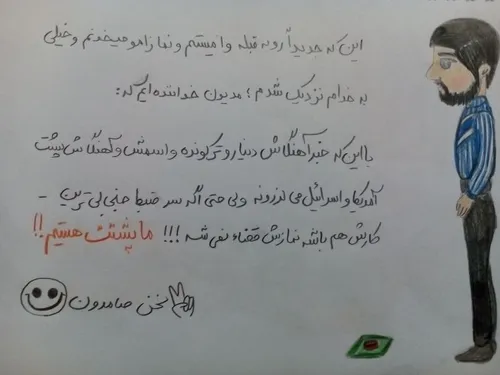 این که جدیداً رو به قبله وا میستم و نمازامو میخونم و خیلی
به خدام نزدیک شدم ؛ مدیون خواننده ایم که :
بااین که خبر آهنگاش دنیا رو ترکونده و اسمش و آهنگاش پشت
آمریکا و اسرائیل می لرزونه ولی حتی اگه سر ضبط جنجالی ترین
کارش هم باشه نمازش قضاء نمی شه !!! ما پشتت هستیم !!
نحن صامدون